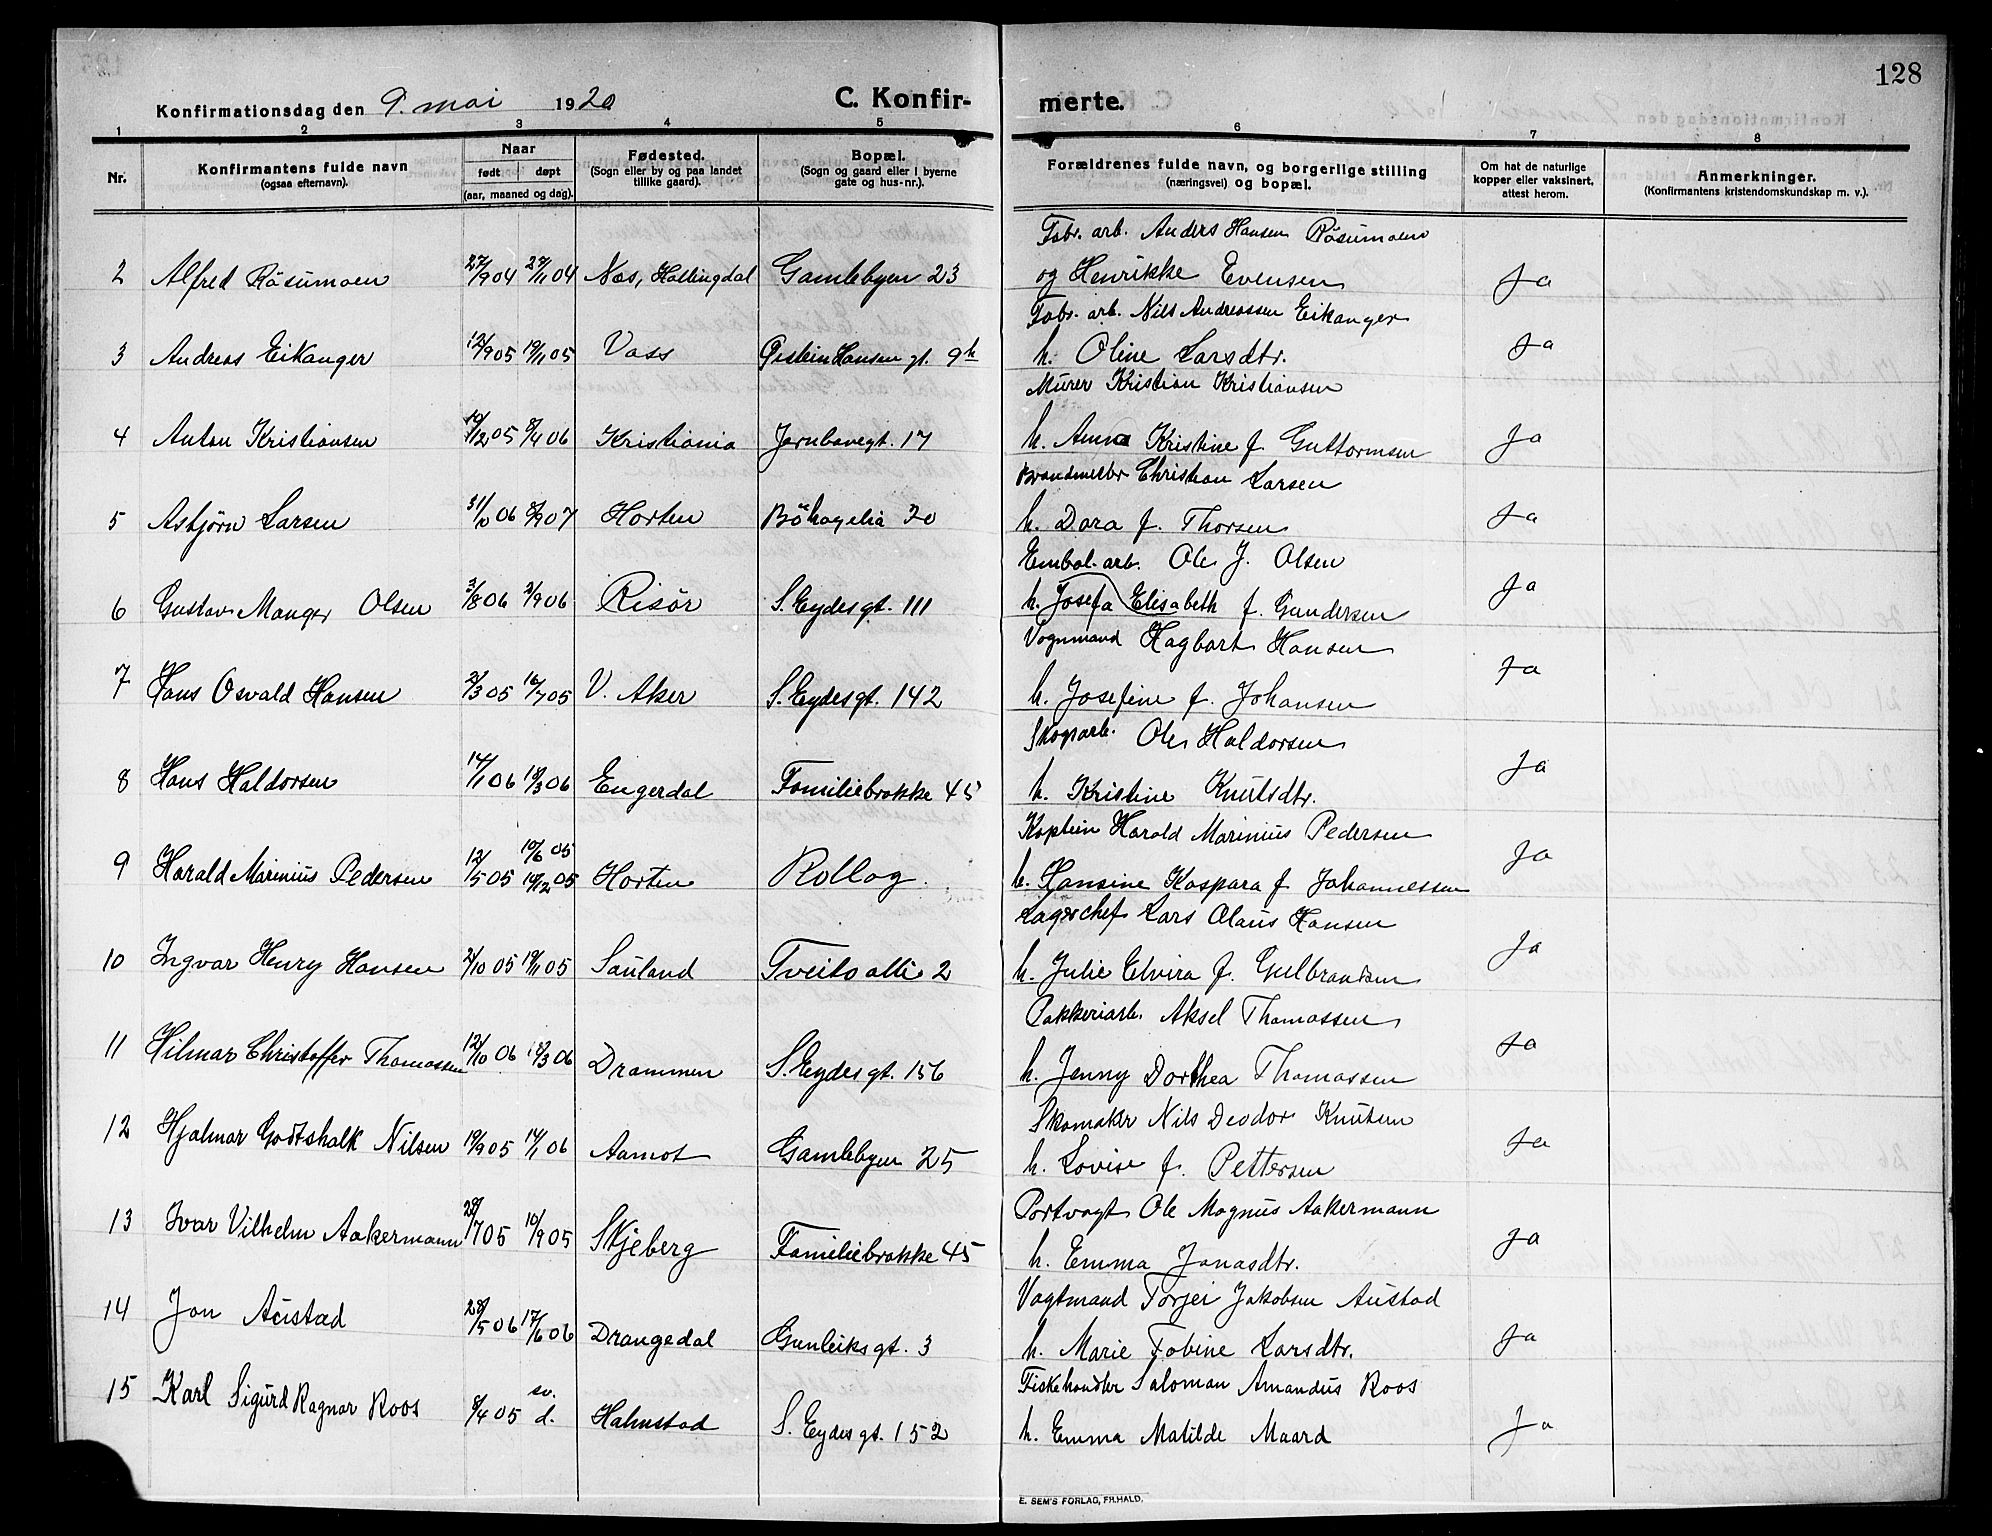 128
Konfirmationsdag den 9. mai 1920 C. Konfir- merte.
1 2 3 4 5 6 7 8
Nr. Konfirmantens fulde navn (ogsaa efternavn). Naar født døpt (aar, maaned og dag). Fødested. (Sogn eller by og paa landet tillike gaard). Bopæl. (Sogn og gaard eller i byerne gate og hus-nr.). Forældrenes fulde navn, og borgerlige stilling (næringsvei) og bopæl. Om hat de naturlige kopper eller vaksinert, attest herom. Anmerkninger. (Konfirmantens kristendomskundskap m. v.).
Fabr. arb. Anders Hansen Råsumoen
2 Alfred Råsumoen 27/9 04 27/11 04 Nes, Hallingdal Gamlebyen 23 og Henrikke Evensen Ja
Fabr. arb. Nils Andreassen Eikanger
3 Andreas Eikanger 12/9 05 19/11 05 Voss Øistein Hansen gt. 9h h. Oline Larsdtr. Ja
Murer Kristian Kristiansen
4 Anton Kristiansen 10/12 05 8/4 06 Kristiania Jernbanegt. 17 h. Anna Kristine f. Guttormsen Ja
Brandmester Christian Larsen
5 Asbjørn Larsen 06 8/9 07 Horten Bøhagelia 30 h. Dora f. Thorsen Ja
Embal. arb. Ole J. Olsen
6 Gustav Manger Olsen 3/8 06 2/9 06 Risør S. Eydesgt. 111 h. Josefa Elisabeth f. Gundersen Ja
Vognmand Hagbart Hansen
7 Hans Osvald Hansen 2/3 05 16/7 05 V. Aker S. Eydesgt. 142 h. Josefine f. Johansen Ja
Skogsarb. Ole Haldorsen
8 Hans Haldorsen 14/1 06 18/3 06 Engerdal Familiebrakke 45 h. Kristine Knutsdtr. Ja
Kaptein Harald Marinius Pedersen
10/6 05
9 Harald Marinius Pedersen 12/5 05 19/12 05 Horten Rollag. h. Hansine Kaspara f. Johannessen Ja
Lagerchef Lars Olaus Hansen
10 Ingvar Henry Hansen 2/10 05 19/11 05 Sauland Tveitoalle 2 h. Julie Elvira f. Gulbrandsen Ja
Pakkeriarb. Aksel Thomassen
11 Hilmar Christoffer Thomassen 12/10 06 /3 06 Drammen S. Eydesgt. 156 h. Jenny Dorthea Thomassen Ja
Skomaker Nils Deodor Knutsen
12 Hjalmar Godtshalk Nilsen 19/9 05 14/1 06 Aamot Gamlebyen 25 h. Lovise f. Pettersen Ja
Portvagt Ole Magnus Aakermann
13 Ivar Vilhelm Aakermann 28/7 05 10/9 05 Skjeberg Familiebrakke 45 h. Emma Jonasdtr. Ja
Vagtmand Torjei Jakobsen Austad
14 Jon Austad 28/5 06 17/6 06 Drangedal Gunleiksgt. 3 h. Marie Tobine Larsdtr. Ja
Fiskehandler Saloman Amandus Roos
sv.
15 Karl Sigurd Ragnar Roos 8/4 05 d. Halmstad S. Eydesgt. 152 h. Emma Matilde Maard Ja
E. SEM'S FORLAG, FR.HALD.